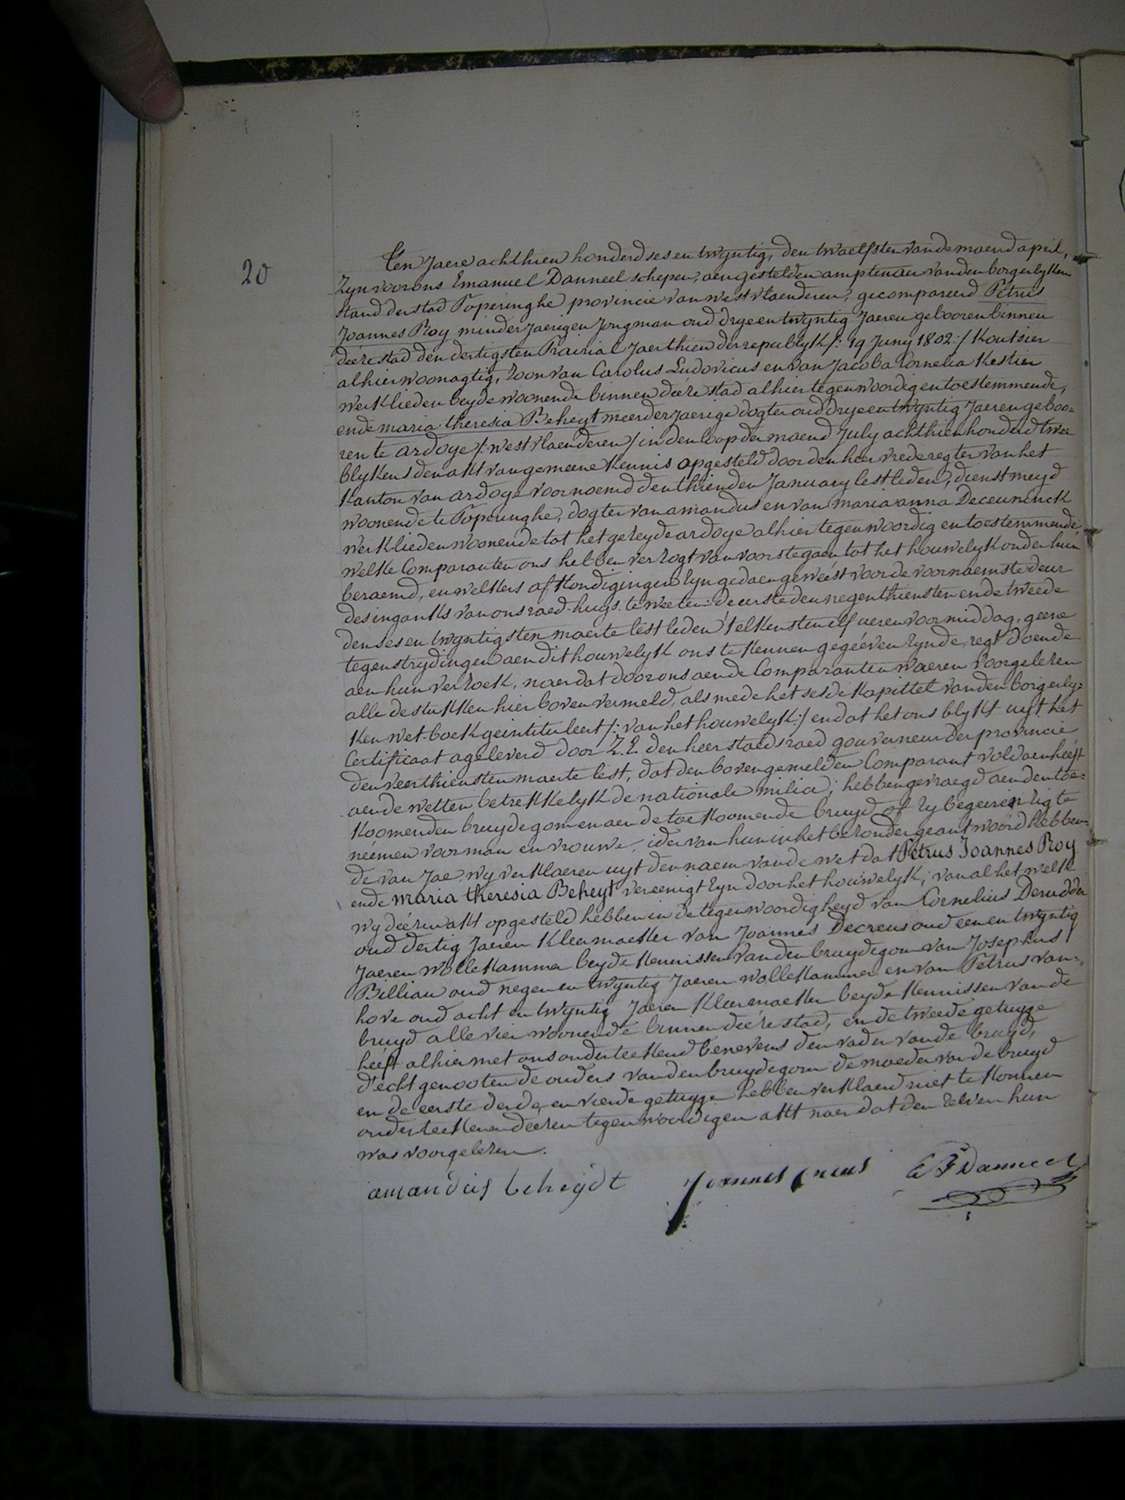 20
Ten Jaere achthien honderd ses en twyntig, den twaelfsten van de maend april,
Zyn voor ons Emanuel Danneel schepen, aengestelden amptenaer van den borgerlyken
stand der stad Poperinghe, provincie van westvlaenderen, gecompareerd Petrus
Joannes Roy minderjaerigen Jongman oud drye en twyntig Jaeren gebooren binnen
deése stad den dertigsten Prairial Jaer thien der republyk /: 19 Juny 1802 :/ Koutsier
alhier woonagtig, Zoon van Carolus Ludovicus en van Jacoba Cornelia Kestier
werklieden beyde woonende binnen deése stad alhier tegenwoordig en toestemmende,
ende maria theresia Beheyt meerderjaerige dogter oud drye en twyntig Jaeren geboo=
ren te ardoye /: westvlaenderen :/ in den loop der maend July achthien honderd twee
blykens den akt van gemeene kennis opgesteld door den heer vrederegter van het
Kanton van ardoye voornoemd den thienden January lest leden, dienst meyd
woonende te Poperinghe, dogter van amandus en van maria anna Deceuninck
werklieden woonende tot het gezeyde ardoye alhier tegenwoordig en toestemmende
welke Comparanten ons hebben verzogt van voorstegaen tot het houwelyk onder hun
beraemd, en welkers afkondigingen Zyn gedaen geweést voor de voornaemste deur
des ingangs van ons raed-huys, te weeten: de eerste den negenthiensten en de tweede
den ses en twyntigsten maerte lest leden 's telkens ten elf ueren voormiddag, geene
tegenstrydingen aen dit houwelyk ons te kennen gegeéven zynde, regt doende
aen hun verzoek, naer dat door ons aen de Comparanten waeren voorgelezen
alle de stukken hier boven vermeld, als mede het sesde kapittel van den borgerly=
ken wet-boek geintituleert /: van het houwelyk :/ en dat het ons blykt uyt het
Certificaat ageleverd door Z. E. den heer staedsraed gouverneur der provincie
den veerthiensten maerte lest, dat den bovengemelden Comparant voldaen heéft
aen de wetten betrekkelyk de nationale milia; hebben gevraegd aen den toe=
koomenden bruydegom en aen de toekoomende bruyd of zy begeeren zig te
neémen voor man en vrouwe, ider van hun in het bezonder geantwoord hebben
de van Jae, wy verklaeren uyt den naem van de wet dat Petrus Joannes Roy
ende maria theresia Beheyt vereenigt Zyn door het houwelyk; van al het welk
wy deésen akt opgesteld hebben in de tegenwoordigheyd van Cornelius Derudder
oud dertig Jaeren Kleermaeker van Joannes Decreus oud een en twyntig
Jaeren wollekammer beyde kennissen van den bruydegom van Josephus
Billiau oud negen en twyntig Jaeren wollekammer en van Petrus van=
hove oud acht en twyntig Jaeren Kleermaeker beyde kennissen van de
bruyd alle vier woonende binnen deése stad, en de tweede getuyge
heéft alhier met ons onderteekend benevens den vader van de bruyd,
d'echtgenooten de ouders van den bruydegom de moeder van de bruyd
en de eerste derde, en vierde getuyge hebben verklaerd niet te konnen
onderteekenen deézen tegenwoordigen akt naer dat den zelven hun
was voorgelezen.
amandus beheydt Joannes creus E F Danneel